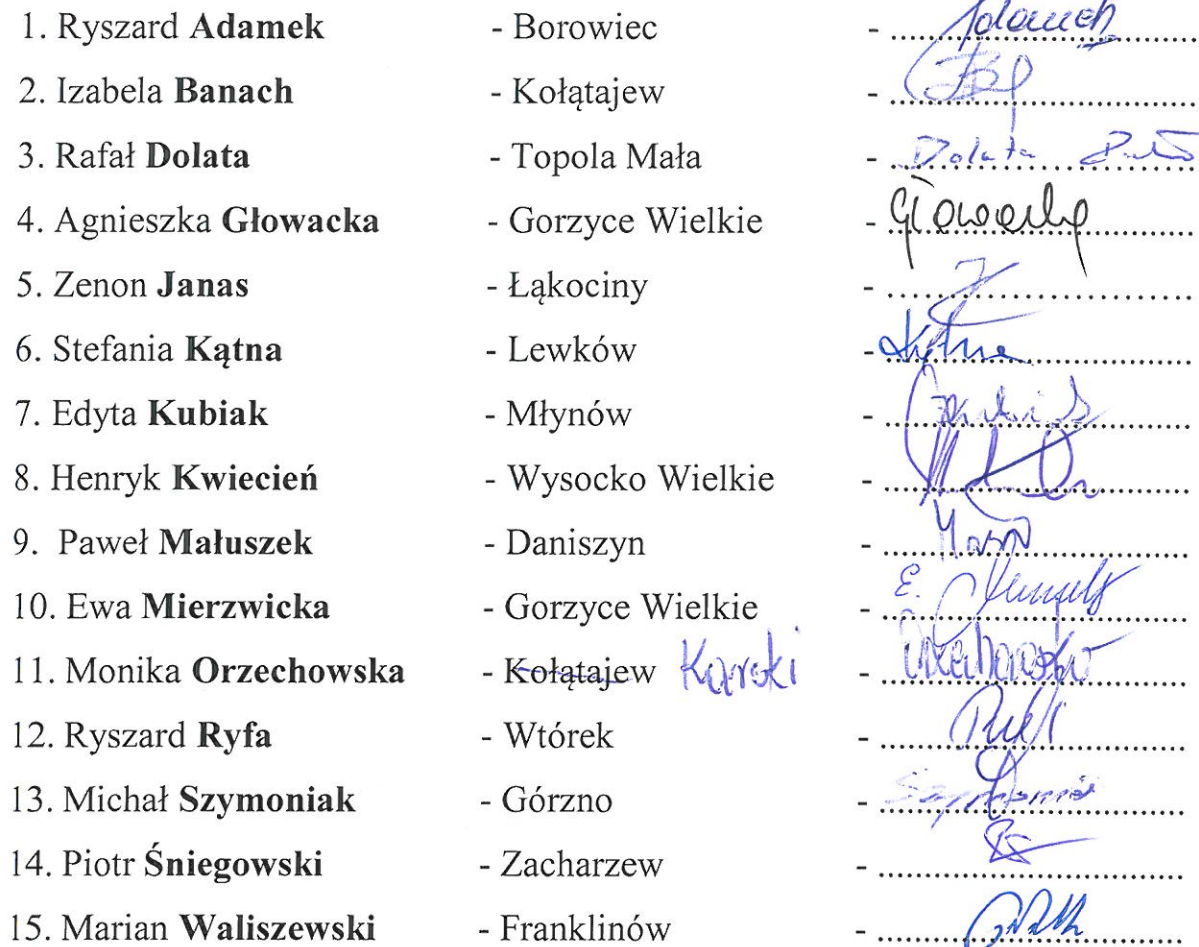 1. Ryszard Adamek - Borowiec - Adamek
2. Izabela Banach - Kołątajew -
3. Rafał Dolata - Topola Mała - Dolata
4. Agnieszka Głowacka - Gorzyce Wielkie - Głowacka
5. Zenon Janas - Łąkociny -
6. Stefania Kątna - Lewków - Kątna
7. Edyta Kubiak - Młynów -
8. Henryk Kwiecień - Wysocko Wielkie -
9. Paweł Małuszek - Daniszyn -
10. Ewa Mierzwicka - Gorzyce Wielkie - E.
11. Monika Orzechowska - Kołątajew Karski - Orzechowska
12. Ryszard Ryfa - Wtórek -
13. Michał Szymoniak - Górzno -
14. Piotr Śniegowski - Zacharzew -
15. Marian Waliszewski - Franklinów -